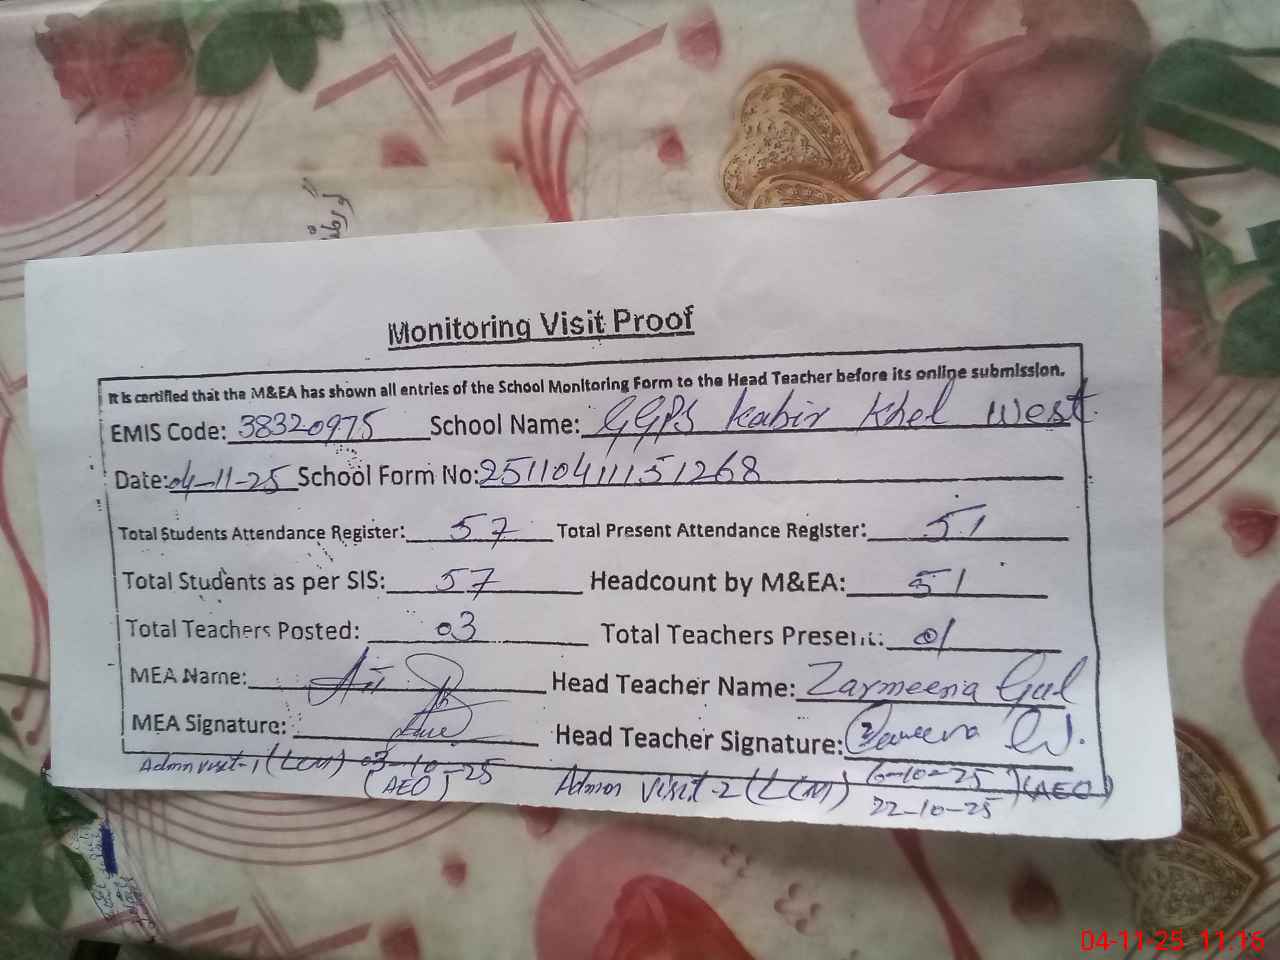 Monitoring Visit Proof
It is certified that the M&EA has shown all entries of the School Monitoring Form to the Head Teacher before its online submission.
EMIS Code: 38320975 School Name: GGPS Kabir Khel West.
Date: 04-11-25 School Form No: 25110411151268
Total Students Attendance Register: 57 Total Present Attendance Register: 51
Total Students as per SIS: 57 Headcount by M&EA: 51
Total Teachers Posted: 03 Total Teachers Present: 01
MEA Name: Head Teacher Name: Zarmeena Gul
MEA Signature: Head Teacher Signature:
Admn visit-1 (LCM) 03-10-25 Admn visit-2 (LCM) 6-10-25 (AEO)
(AEO) 22-10-25
04-11-25 11:16